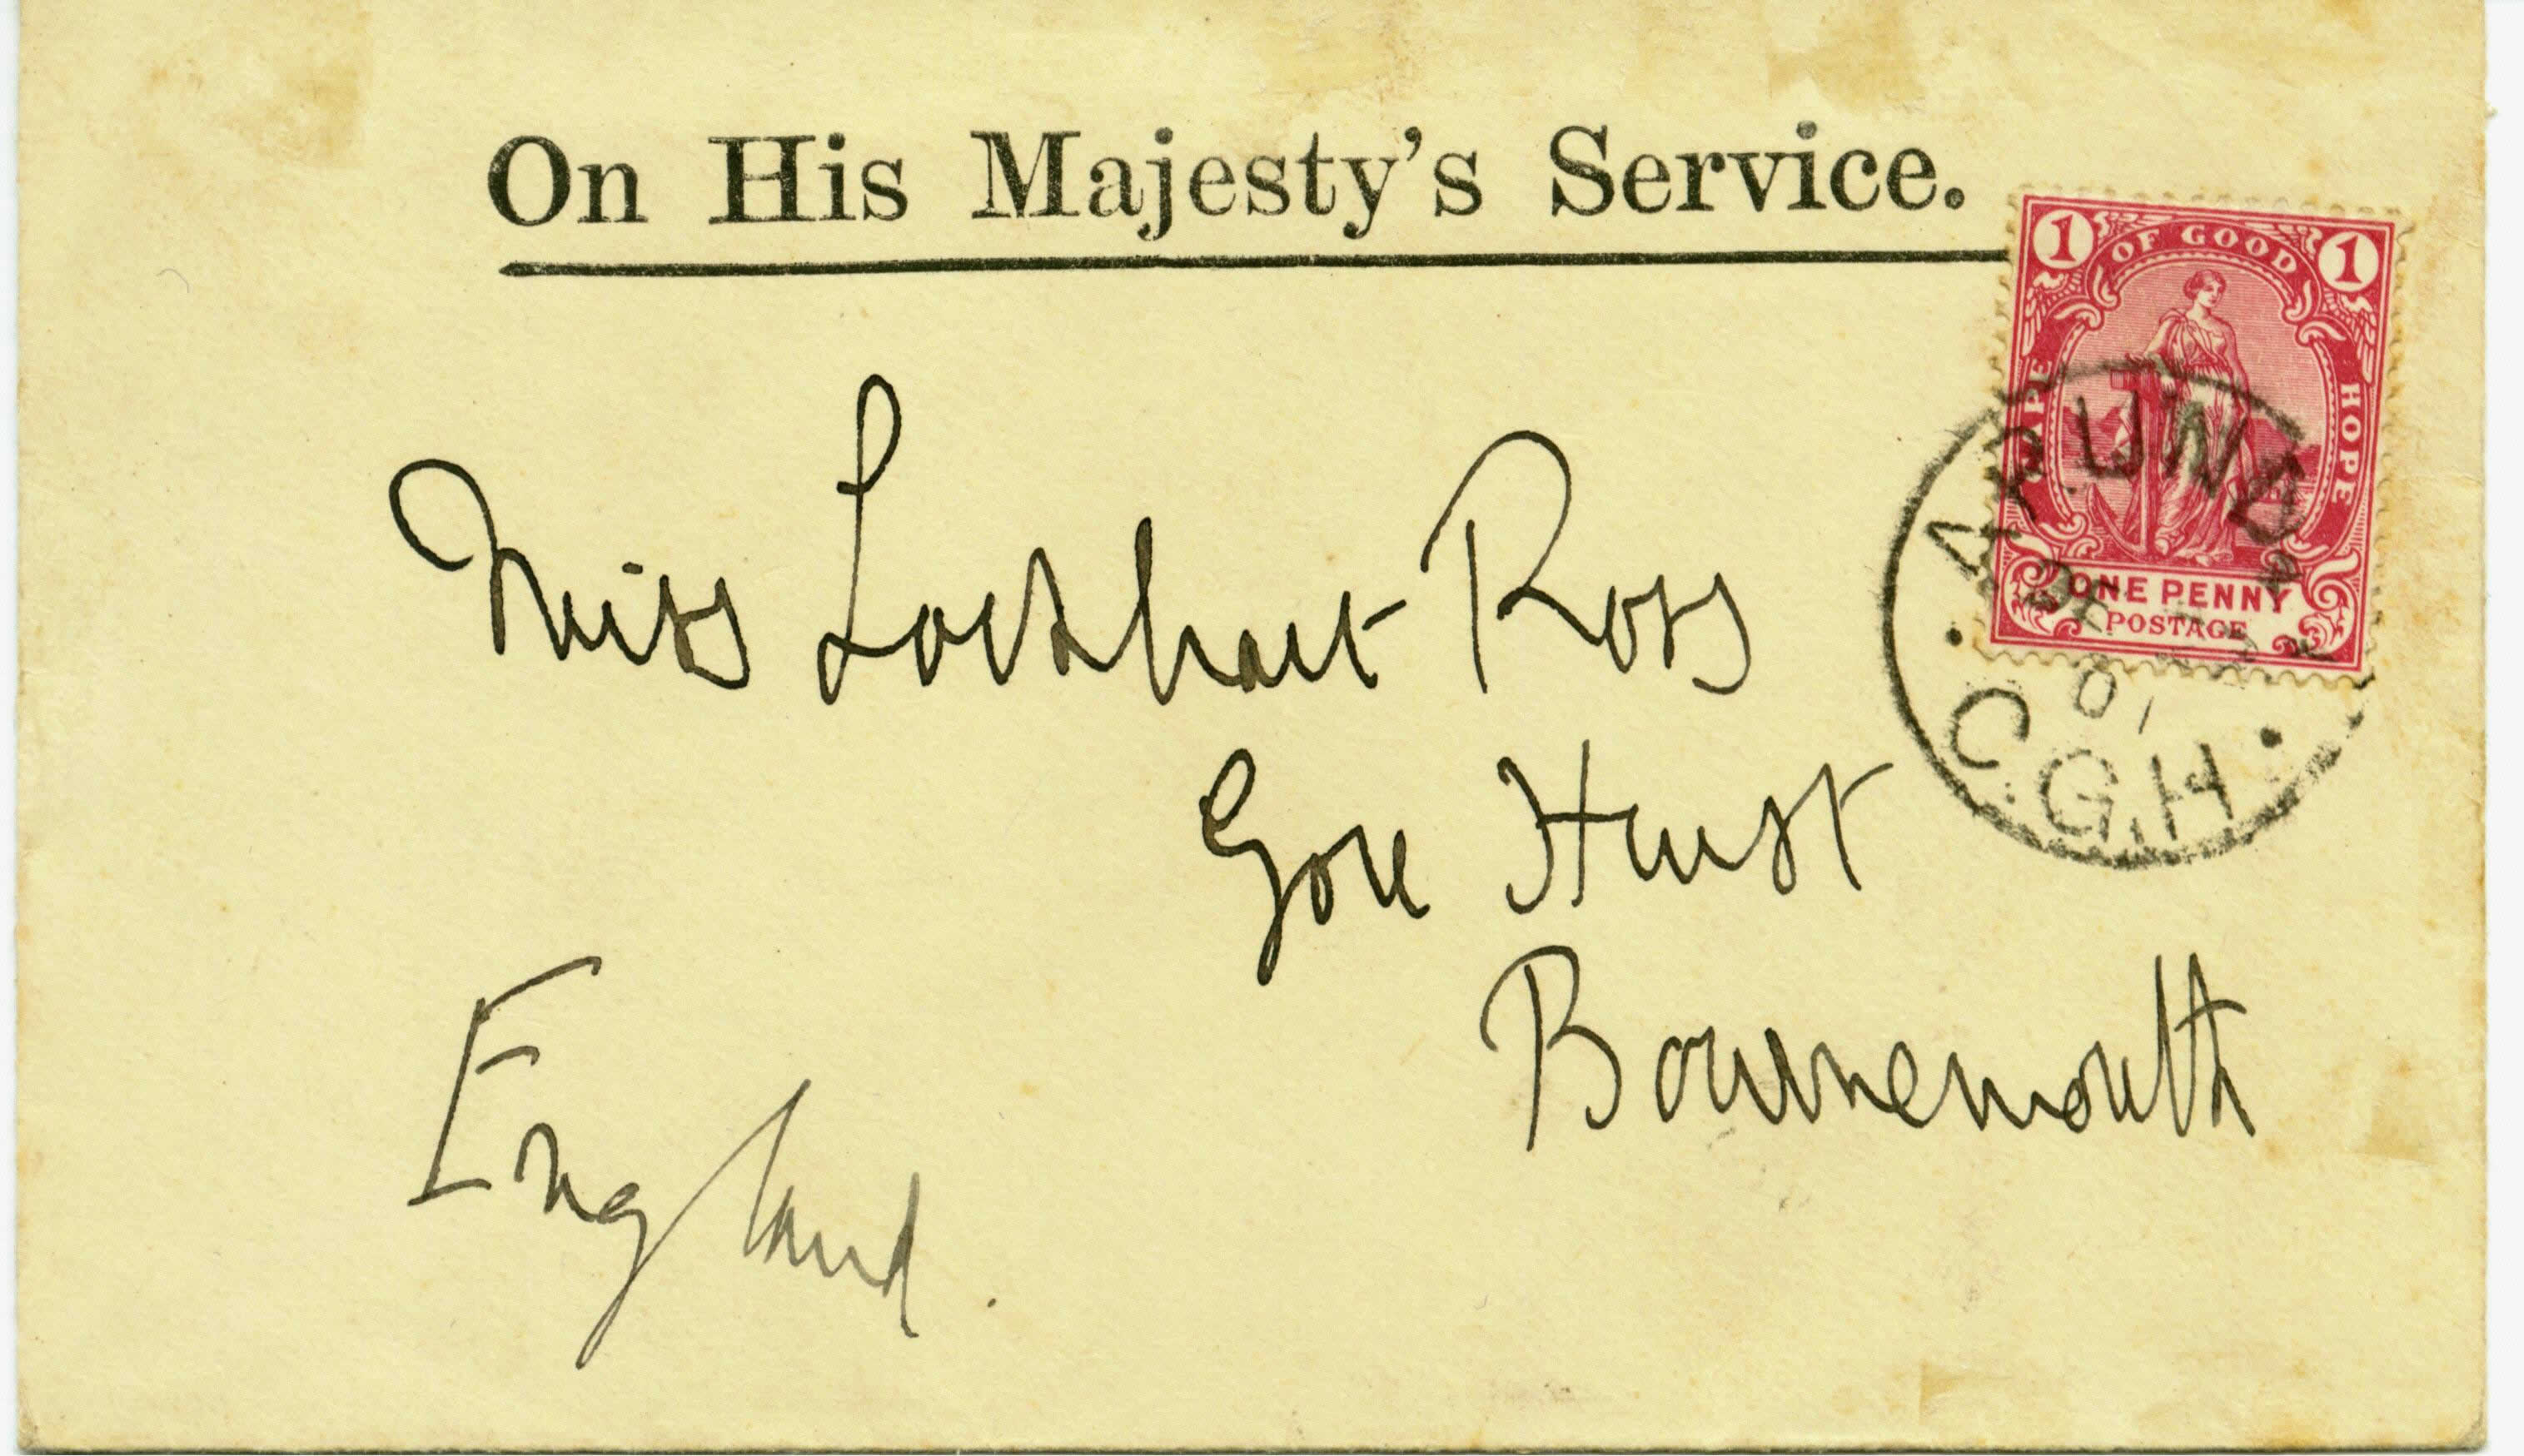 On His Majesty's Service.
1 1
CAPE OF GOOD HOPE
ONE PENNY
POSTAGE
01
C.G.H
Miss Lockhart Ross
Gore Hurst
Bournemouth
England.